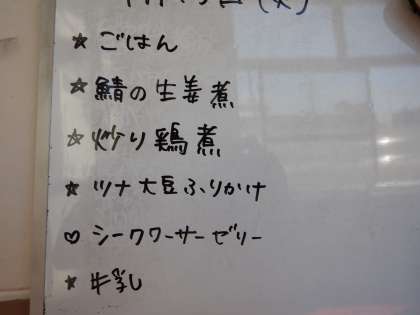 ☆ ごはん
☆ 鯖の生姜煮
☆ 炒り鶏煮
★ ツナ大豆ふりかけ
♡ シークワーサーゼリー
★ 牛乳